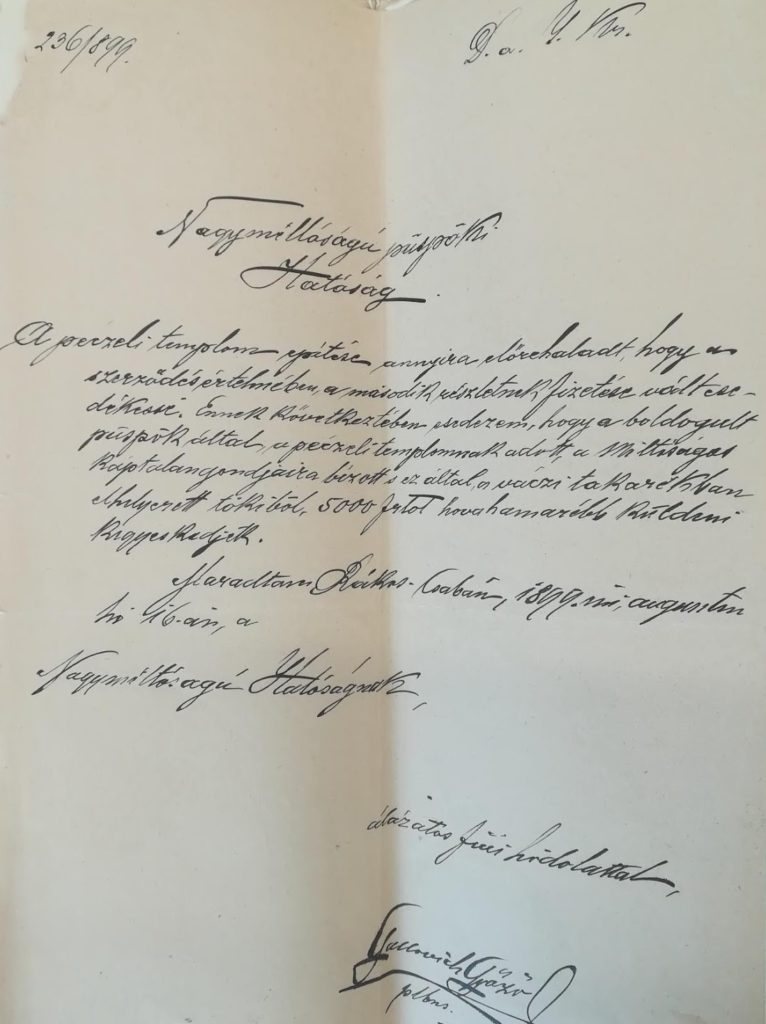 236/899.
D. a. J. Kr.
Nagyméltóságú püspöki
Hatóság.
A péczeli templom építése annyira előrehaladt, hogy a
szerződés értelmében, a második részletnek fizetése vált ese-
dékessé. Ennek következtében esedezem, hogy a boldogult
püspök által, a péczeli templomnak adott, a Méltóságos
Káptalan gondjaira bízott s ez által, a váczi takarékban
elhelyezett tőkéből, 5000 frtot hovahamarébb küldeni
kegyeskedjék.
Maradtam Rákos-Csabán, 1899. évi, augusztus
hó 16-án, a
Nagyméltóságú Hatóságnak,
alázatos fiúi hódolattal,
Győző
plbns.